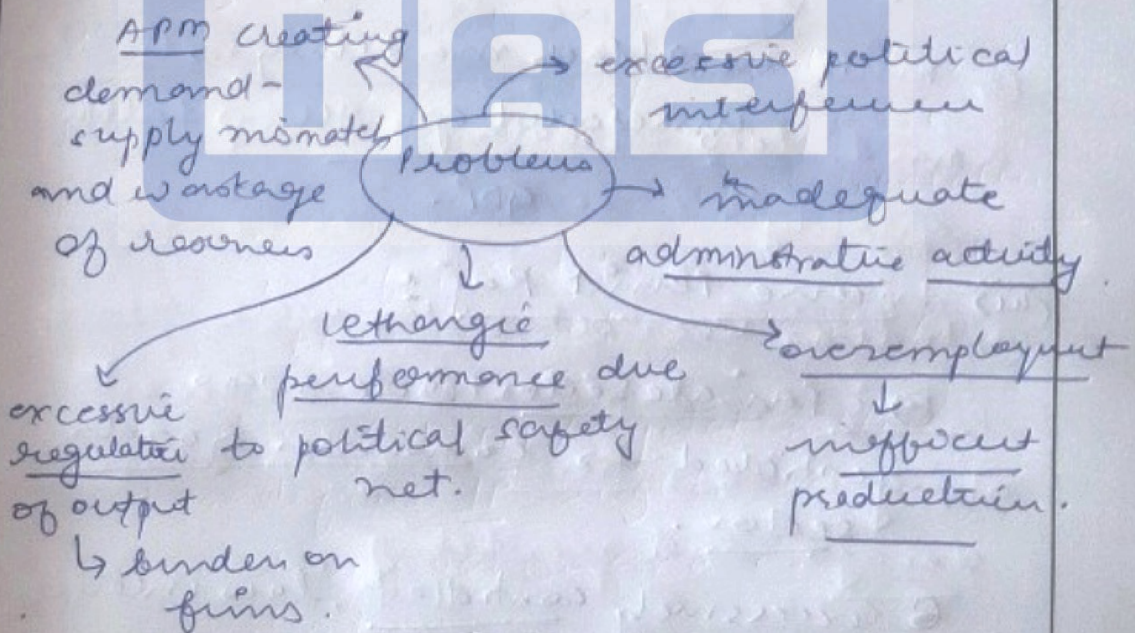 IAS
APM creating
demand-
supply mismatch
and wastage
of resources
Problems
excessive political
interference
inadequate
administrative activity.
overemployment
↓
inefficient
production.
lethargic
performance due
to political safety
net.
excessive
regulation
of output
↳ burden on
firms.